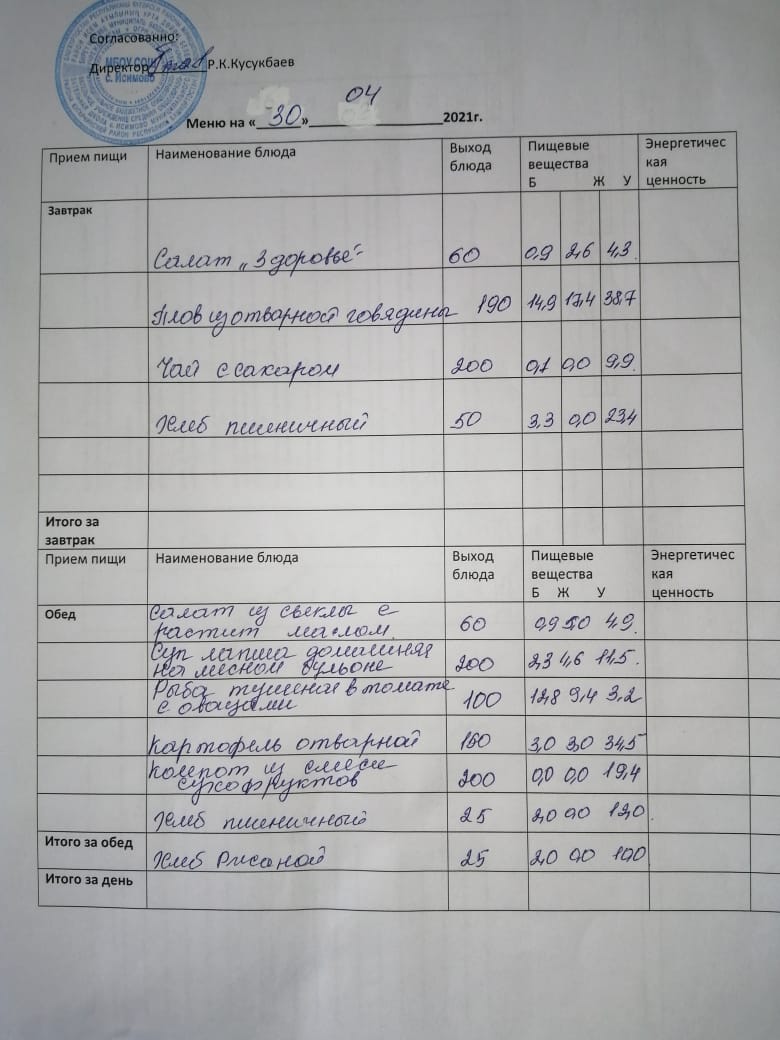 Согласованно:
МБОУ СОШ
с. Исимово
Директор Р.К.Кусукбаев
Меню на «30» 04 2021г.
Прием пищи Наименование блюда Выход блюда Пищевые вещества Б Ж У Энергетичес кая ценность
Завтрак
Салат „Здоровье" 60 0,9 2,6 4,3
Плов из отварной говядины 190 14,9 17,4 38,7
Чай с сахаром 200 0,1 0,0 9,9
Хлеб пшеничный 50 3,3 0,0 23,4
Итого за завтрак
Прием пищи Наименование блюда Выход блюда Пищевые вещества Б Ж У Энергетичес кая ценность
Обед
Салат из свеклы с
растит маслом. 60 0,9 5,0 4,9
Суп лапша домашняя
на мясном бульоне 200 2,3 4,6 11,5
Рыба тушеная в томате
с овощами 100 12,8 9,4 3,2
Картофель отварной 150 3,0 3,0 34,5
Компот из смеси
сухофруктов 200 0,0 0,0 19,4
Хлеб пшеничный 25 2,0 0,0 12,0
Итого за обед Хлеб Ржаной 25 2,0 0,0 10,0
Итого за день